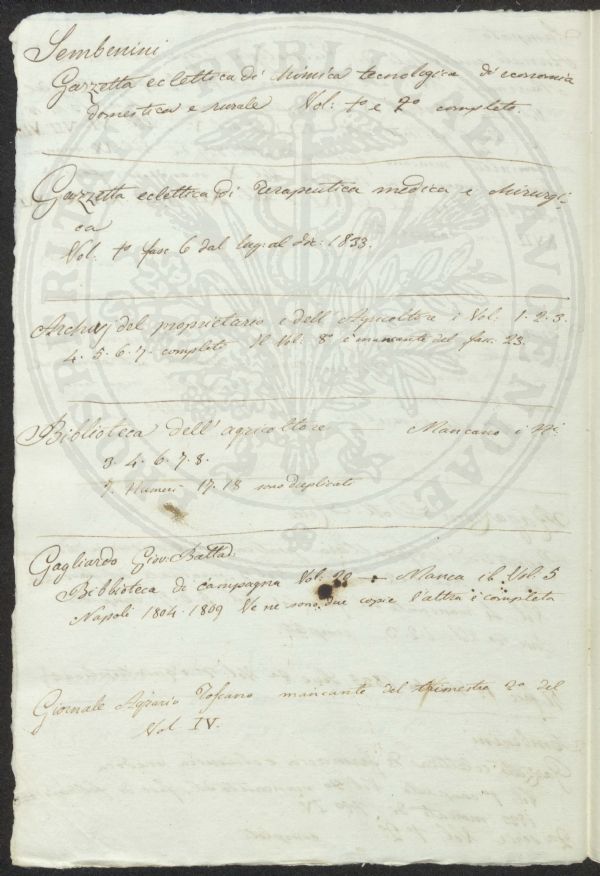 Sembenini
Gazzetta eclettica di chimica tecnologica di economia
domestica e rurale Vol: 1º e 2º completo.
Gazzetta eclettica di Terapeutica medica e chirurgi-
ca
Vol: 1º fasc. 6 dal lug: al dic: 1833.
del proprietario e dell' Agricoltore i Vol. 1. 2. 3.
4. 5. 6. 7. completi Il Vol: 8º è mancante del fasc. 23.
Biblioteca dell' agricoltore — Mancano i Nⁱ
3. 4. 6. 7. 8.
I Numeri 17. 18 sono duplicati
Gagliardo Giov: Battᵃ
Biblioteca di campagna Vol: — Manca il Vol. 5
Napoli 1804. 1809 Ve ne sono due copie l'altra è completa
Giornale Agrario Toscano mancante del trimestre 2º del
Vol IV.